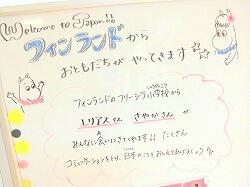 Welcome to Japan!!
フィンランドから
おともだちが やってきます☆
フィンランドのフリーシラ小学校から
エリアスさん さやかさんが
みんなに会いにきてくれます!! たくさん
コミュニケーションをとり、日本のことをおしえてあげましょう